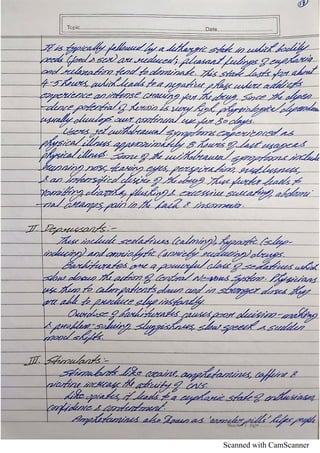 Topic Date
It is typically followed by a lethargic state in which bodily
need (food & sex) are reduced; pleasant feelings of euphoria
and relaxation tend to dominate. This state lasts for about
4-5 hours, which leads to a negative phase where addicts
experience an intense craving for the drug. Since the depen
-dence potential of heroin is very high, physiological dependence
usually develops over continual use for 30 days.
Users get withdrawal symptoms experienced as
physical illness approximately 8 hours of last usage as
physical illness. Some of the withdrawal symptoms include
running nose, tearing eyes, perspiration, restlessness,
& an intensified desire of the drug. This further leads to
vomitting, diarrhea, flushing & excessive sweating, abdomi
-nal cramps, pain in the back & insomnia.
II. Depressants:-
These include sedatives (calming), hypnotic (sleep-
inducing) and anxiolytic (anxiety reducing) drugs.
Barbiturates are a powerful class of sedatives which
slow down the action of Central Nervous System. Physicians
use them to calm patients down and in stronger doses they
are able to produce sleep instantly.
Overdose of barbiturates causes poor decision-making
& problem-solving, sluggishness, slow speech & sudden
mood shifts.
III. Stimulants:-
Stimulants like cocaine, amphetamines, caffeine &
nicotine increase the activity of CNS.
Like opiates, it leads to a euphoric state of enthusiasm
confidence & contentment.
Amphetamines also known as 'wonder pills' helps people
Scanned with CamScanner